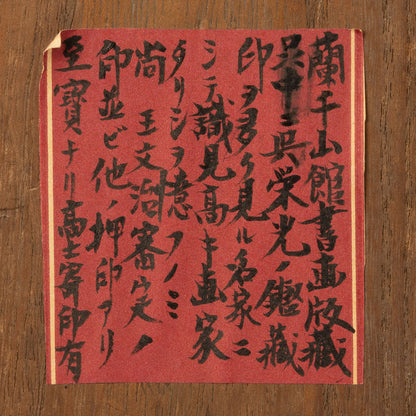 蘭千山館書画版蔵
呉中ニ呉栄光ノ鑑蔵
印ヲ多ク見ル名家ニ
シテ識見高キ画家
タリシヲ憶フノミ
尚王文治審定ノ
印並ビ他ノ押印アリ
至寶ナリ高士寄印有